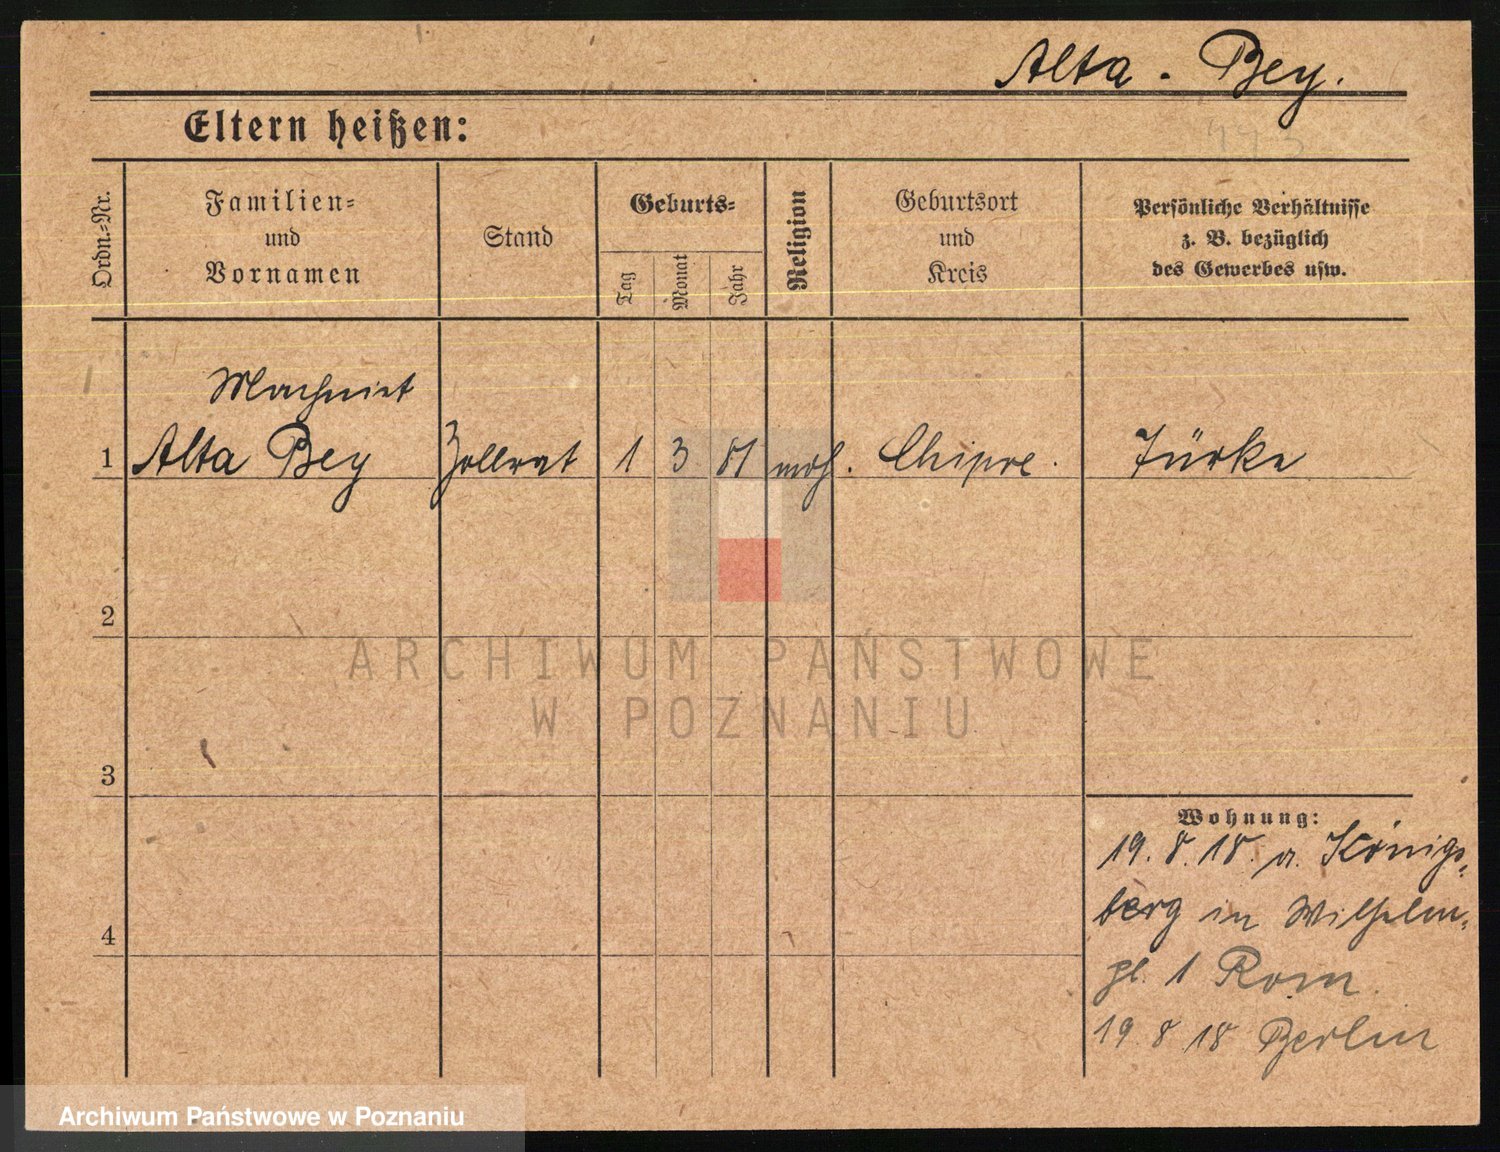 Alta - Bey.
Eltern heißen:
Ordn.-Nr.
Familien-
und
Vornamen
Stand
Geburts-
Tag
Monat
Jahr
Religion
Geburtsort
und
Kreis
Persönliche Verhältnisse
z. B. bezüglich
des Gewerbes usw.
1
Alta Bey
Zollrat
1
3
81
moh.
Chipre.
Türke
2
3
4
Wohnung:
19. 8. 18. a. Königs-
berg in Wilhelm-
pl. 1 Rom.
19 8 18 Berlin
ARCHIWUM PAŃSTWOWE
W POZNANIU
Archiwum Państwowe w Poznaniu